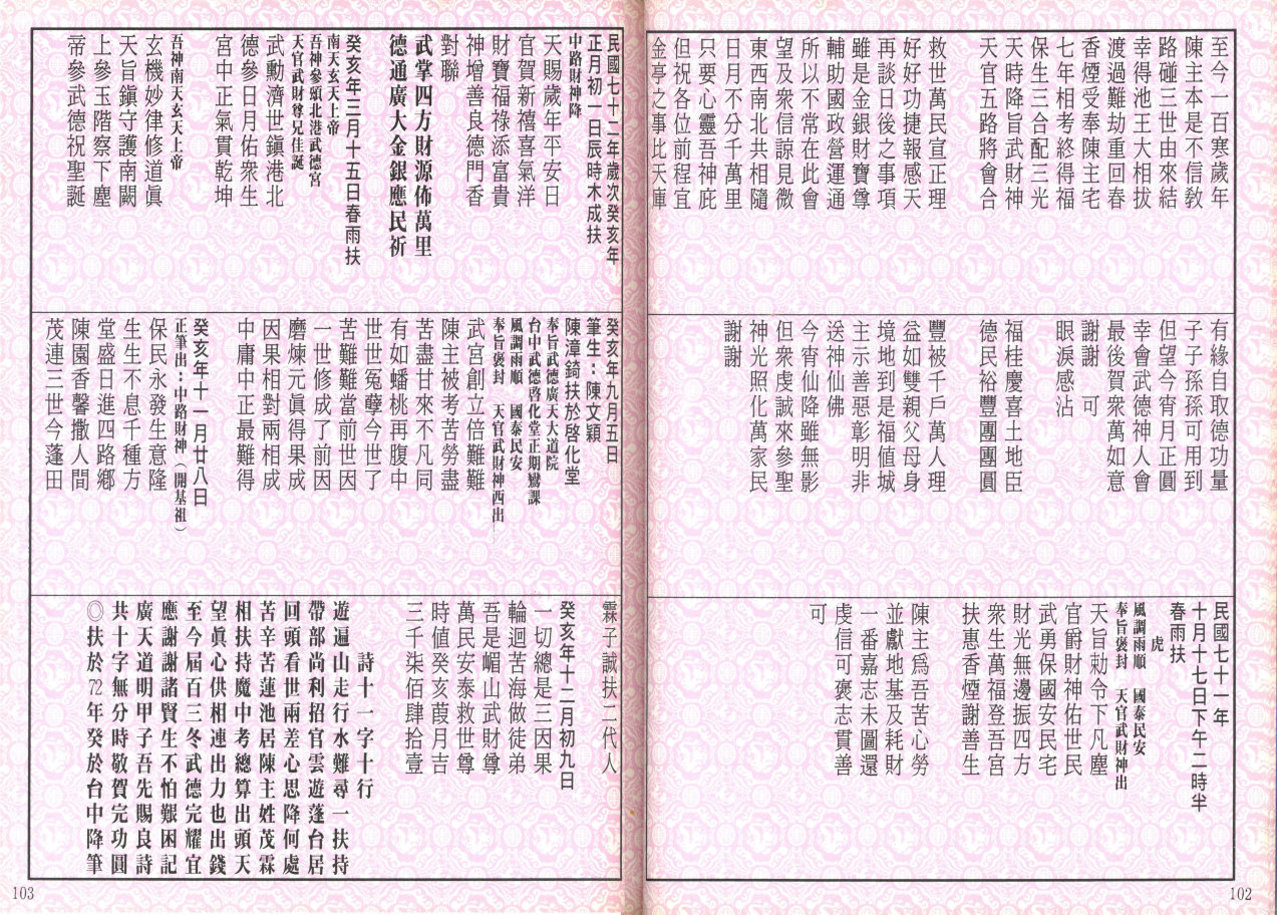 至今一百寒歲年
陳主本是不信教
路碰三世由來結
幸得池王大相拔
渡過難劫重回春
香煙受奉陳主宅
七年相考終得福
保生三合配三光
天時降旨武財神
天官五路將會合
救世萬民宣正理
好好功捷報感天
再談日後之事項
雖是金銀財寶尊
輔助國政營運通
所以不常在此會
望及衆信諒見微
東西南北共相隨
日月不分千萬里
只要心靈吾神庇
但祝各位前程宜
金亭之事比天庫
有緣自取德功量
子子孫孫可用到
但望今宵月正圓
幸會武德神人會
最後賀衆萬如意
謝謝　可
眼淚感沾
福桂慶喜土地臣
德民裕豐團團圓
豐被千戶萬人理
益如雙親父母身
境地到是福值城
主示善惡彰明非
送神仙佛
今宵仙降雖無影
但衆虔誠來參聖
神光照化萬家民
謝謝
民國七十一年
十月十七日下午二時半
春雨扶
虎
風調雨順　國泰民安
奉旨褒封　天官武財神出
天旨勅令下凡塵
官爵財神佑世民
武勇保國安民宅
財光無邊振四方
衆生萬福登吾宮
扶惠香煙謝善生
陳主爲吾苦心勞
並獻地基及耗財
一番嘉志未圖還
虔信可褒志貫善
可
102
民國七十二年歲次癸亥年
正月初一日辰時木成扶
中路財神降
天賜歲年平安日
官賀新禧喜氣洋
財寶福祿添富貴
神增善良德門香
對聯
武掌四方財源佈萬里
德通廣大金銀應民祈
癸亥年三月十五日春雨扶
南天玄天上帝
吾神參頌北港武德宮
天官武財尊兄佳誕
武勳濟世鎭港北
德參日月佑衆生
宮中正氣貫乾坤
吾神南天玄天上帝
玄機妙律修道眞
天旨鎭守護南闕
上參玉階察下塵
帝參武德祝聖誕
癸亥年九月五日
筆生：陳文穎
陳漳錡扶於啓化堂
奉旨武德廣天大道院
台中武德啓化堂正期鸞課
風調雨順　國泰民安
奉旨褒封　天官武財神西出
武宮創立倍難難
陳主被考苦勞盡
苦盡甘來不凡同
有如蟠桃再腹中
世世冤孽今世了
苦難難當前世因
一世修成了前因
磨煉元眞得果成
因果相對兩相成
中庸中正最難得
癸亥年十一月廿八日
正筆出：中路財神（開基祖）
保民永發生意隆
生生不息千種方
堂盛日進四路鄉
陳園香馨撒人間
茂連三世今蓬田
霖子誠扶二代人
癸亥年十二月初九日
一切總是三因果
輪迴苦海做徒弟
吾是嵋山武財尊
萬民安泰救世尊
時値癸亥葭月吉
三千柒佰肆拾壹
詩十一字十行
遊遍山走行水難尋一扶持
帶部尚利招官雲遊蓬台居
回頭看世兩差心思降何處
苦辛苦苦蓮池居陳主姓茂霖
相扶持魔中考總算出頭天
望眞心供相連出力也出錢
至今屆百三冬武德完耀宜
應謝謝諸賢生不怕艱困記
廣天道明甲子吾先賜良詩
共十字無分時敬賀完功圓
◎扶於72年癸於台中降筆
103